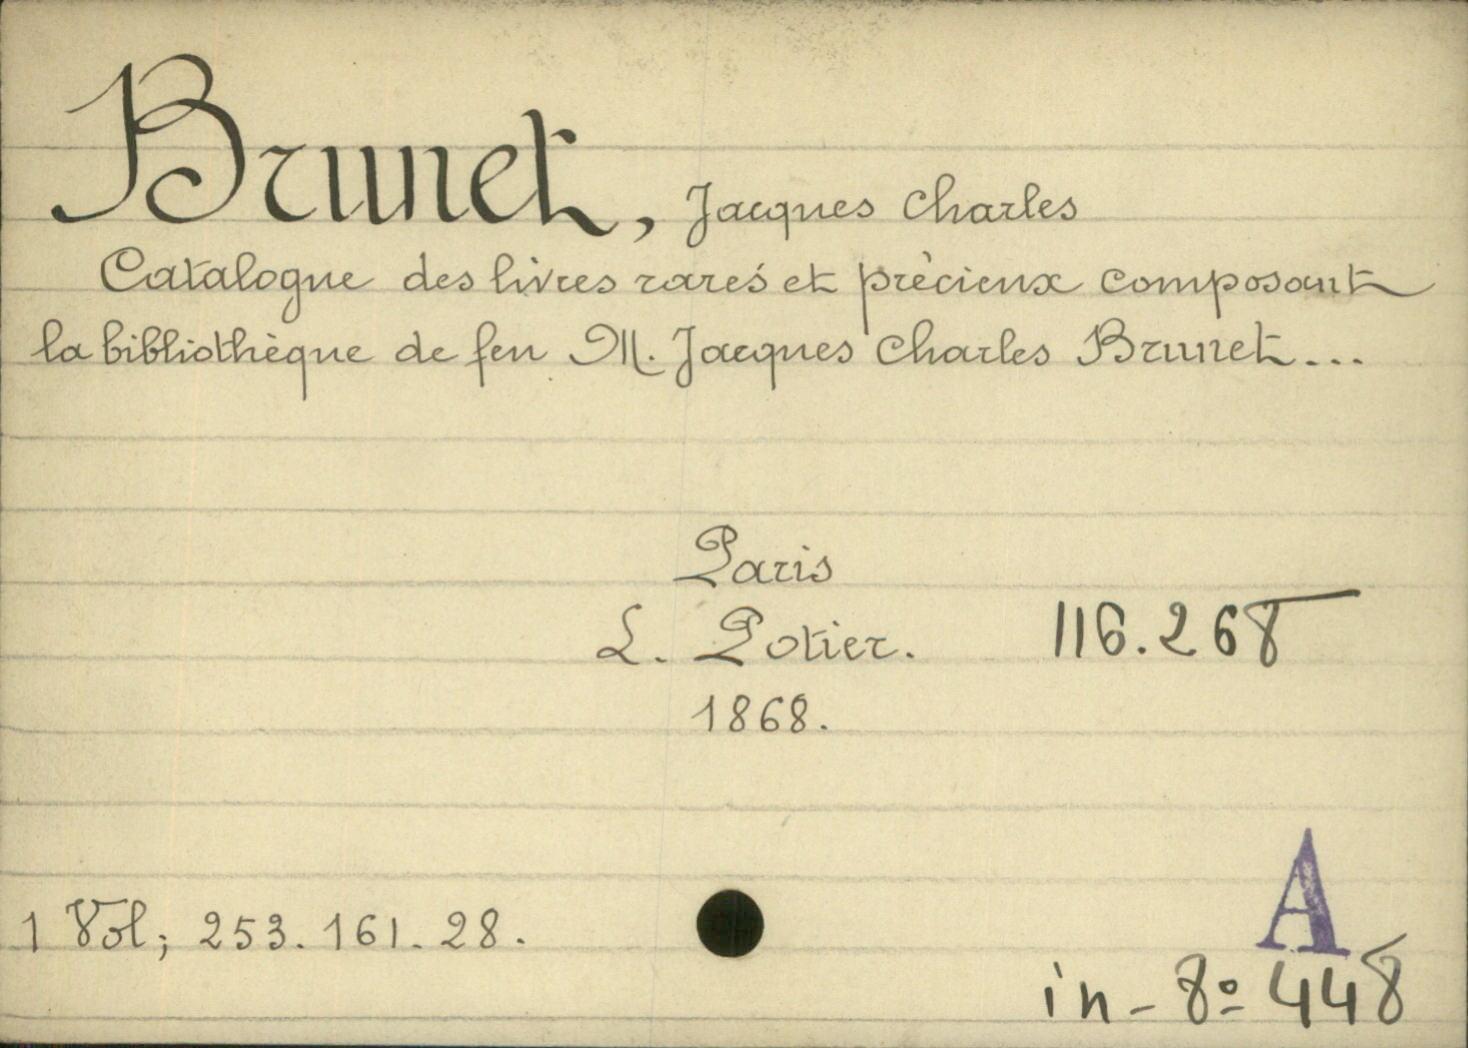 Brunet, Jacques Charles
Catalogue des livres rares et précieux composant
la bibliothèque de feu M. Jacques Charles Brunet...
Paris
L. Potier. 116.268
1868.
1 Vol; 253.161.28.
A
in-8º 448